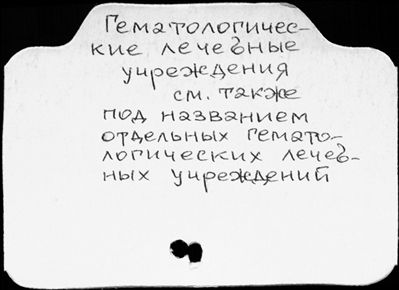 Гематологичес-
кие лечебные
учреждения
см. также
под названием
отдельных гемато-
логических лечеб-
ных учреждений